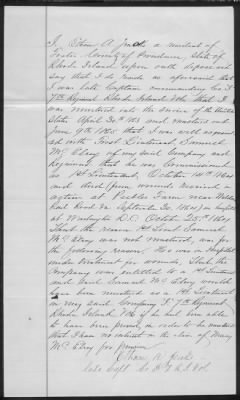 I, Ethan A Jenks a resident of
Foster County of Providence, State of
Rhode Island upon oath depose and
say that I do reside as aforesaid that
I was late Captain commanding Co. I
7th Regiment Rhode Island Vols that I
was mustered out the service of the United
States
June 9th 1865 that I was well acquain
ted with First Lieutenant Samuel
McElroy of my said Company and
Regiment that he was Commissioned
as 1st Lieutenant, October 14th 1864
and died from wounds received in
action at Peebles Farm near Weldon
Rail Road Va September 30, 1864, in hospital
at Washington D.C. October 25th 1864.
That the reason 1st Lieut Samuel
McElroy was not mustered, was for
the following reason He was in Hospital
under treatment for wounds, That the
Company was entitled to a 1st Lieutenant
and said Samuel McElroy would
have been mustered as a 1st Lieutenant
in my said Company 7th Regiment
Rhode Island Vols if he had been able
to have been present in order to be mustered
that I have no interest in the claim of Mary
McElroy for pension
Ethan A. Jenks
late Capt Co 7 R.I. Vol